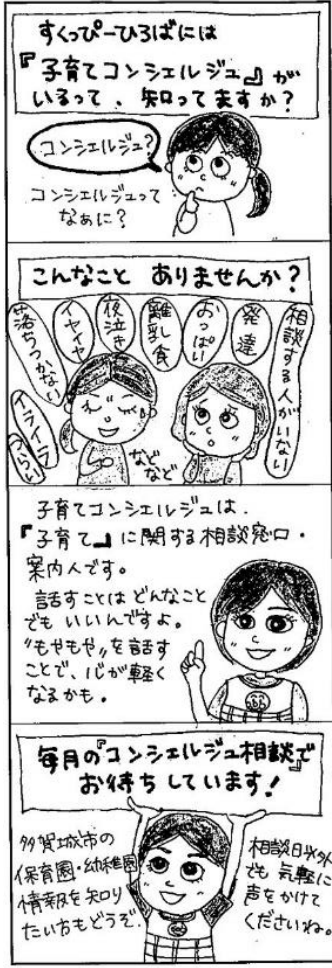 すくっぴーひろばには
『子育てコンシェルジュ』が
いるって、知ってますか?
コンシェルジュ?
コンシェルジュって
なぁに?
こんなこと ありませんか?
相談する人がいない
発達
おっぱい
離乳食
夜泣き
イヤイヤ
落ちつかない
イライラ
つらい
などなど
子育てコンシェルジュは、
『子育て』に関する相談窓口・
案内人です。
話すことはどんなこと
でもいいんですよ。
〝もやもや〟を話す
ことで、心が軽く
なるかも。
毎月の『コンシェルジュ相談』で
お待ちしています!
多賀城市の
保育園・幼稚園
情報を知り
たい方もどうぞ。
相談日以外
でも 気軽に
声をかけて
くださいね。